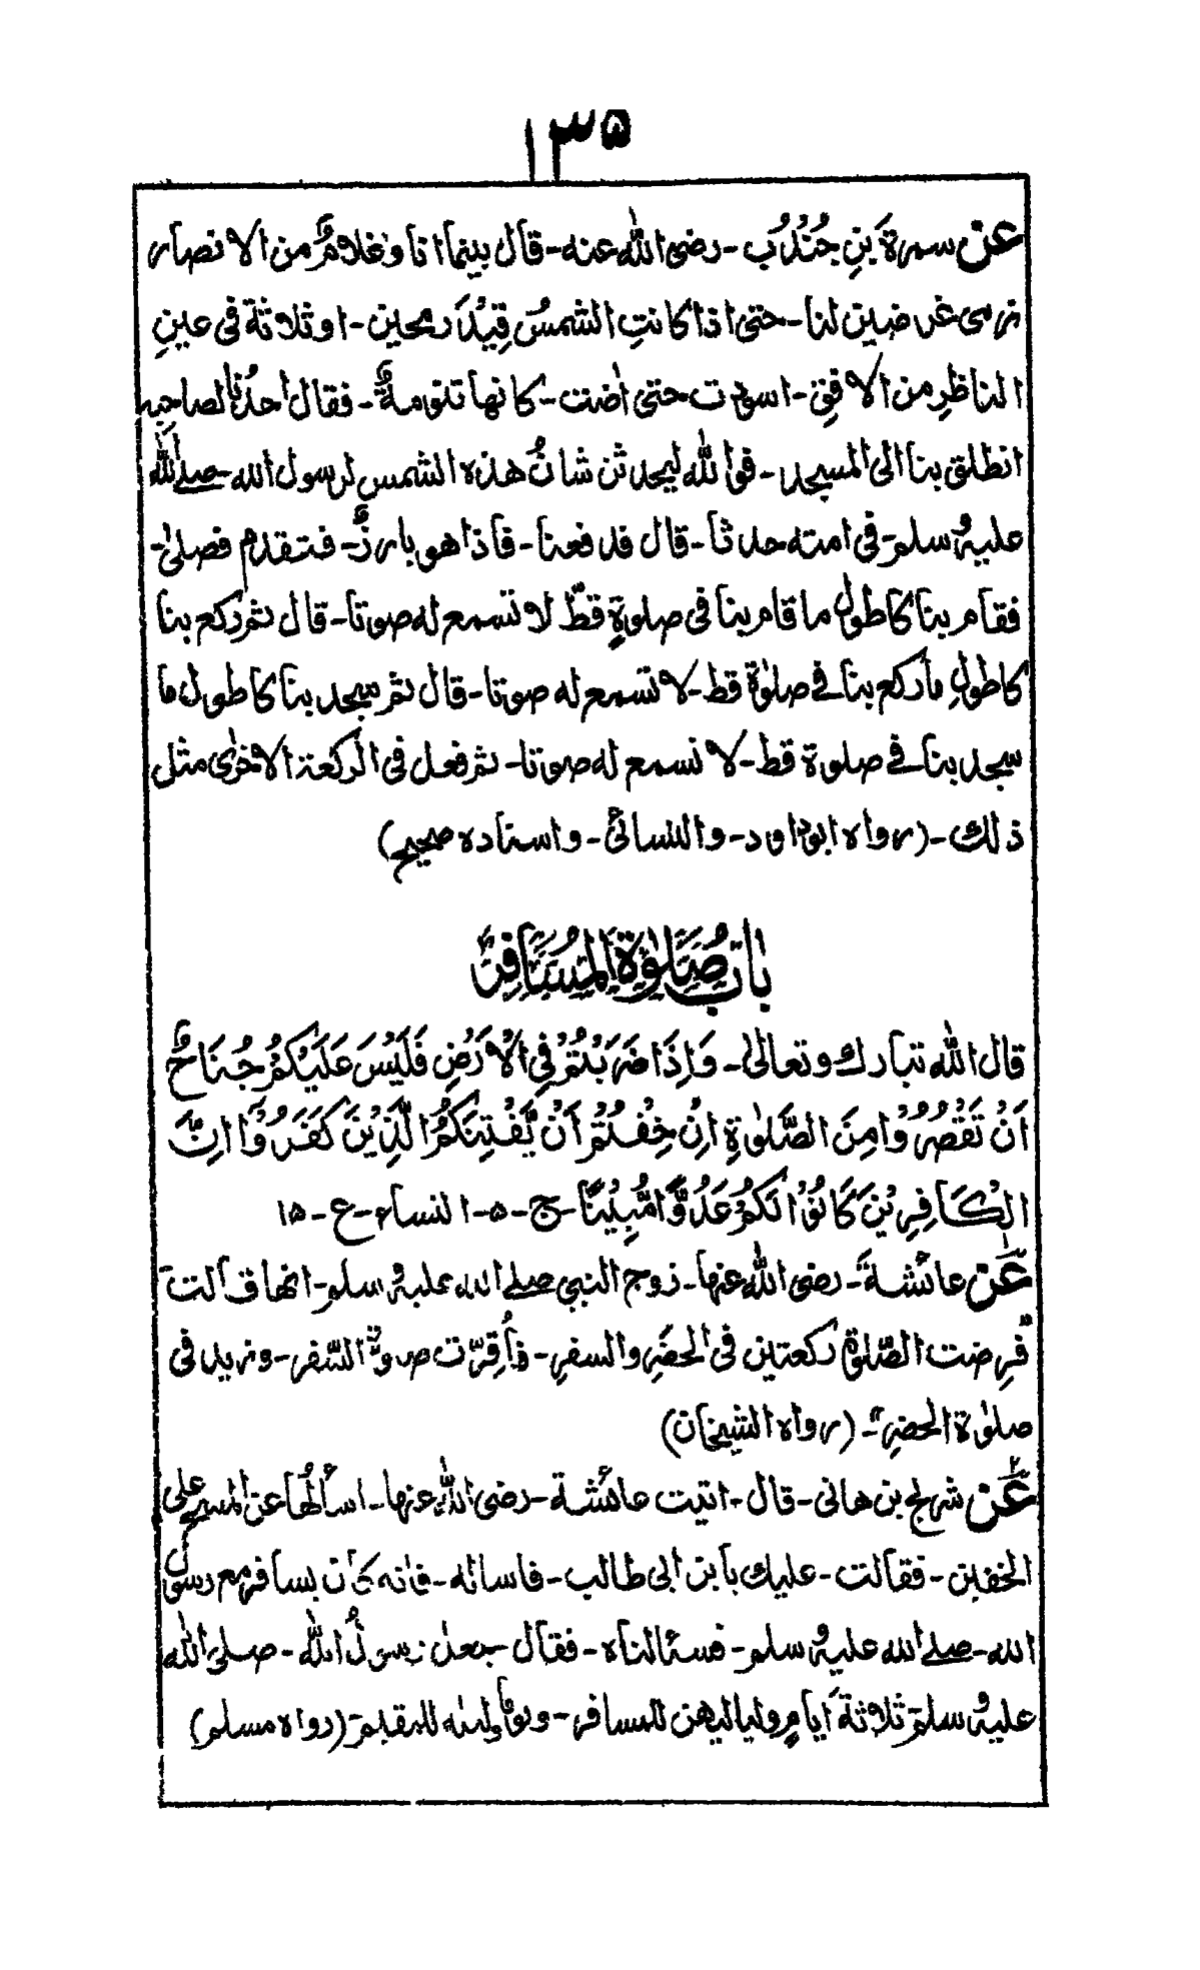 ١٣٥
عن سمرة بنِ جُنْدُب - رضی الله عنه - قال بینما انا وغلامٌ من الانصار
نرمی غرضین لنا - حتی اذا کانتِ الشمسُ قِیْدَ رمحین - او ثلاثة فی عینِ
الناظرِ من الافقِ - اسودت حتی اٰضت - کانها تنومةٌ - فقال احدُنا لصاحبه
انطلق بنا الی المسجد - فوالله لیحدثن شانُ هذه الشمس لرسول الله - صلے الله
علیه وسلم - فی امته حدثا - قال فدفعنا - فاذا هو بارزٌ - فتقدم فصلیٰ -
فقام بنا کاطولِ ما قام بنا فی صلوةٍ قطّ لا نسمع له صوتا - قال ثم رکع بنا
کاطولِ ما رکع بنا فے صلوٰة قط - لا نسمع له صوتا - قال ثم سجد بنا کاطول ما
سجد بنا فے صلوة قط - لا نسمع له صوتا - ثم فعل فی الرکعة الاخرٰی مثل
ذلك - (رواه ابوداود - والنسائی - واسناده صحیح)
بابُ صَلٰوةِ الْمُسَافِرِ
قال الله تبارك وتعالیٰ - وَاِذَا ضَرَبْتُمْ فِی الْاَرْضِ فَلَیْسَ عَلَیْکُمْ جُنَاحٌ
اَنْ تَقْصُرُوْا مِنَ الصَّلٰوةِ اِنْ خِفْتُمْ اَنْ یَّفْتِنَکُمُ الَّذِیْنَ کَفَرُوْا اِنَّ
الْکَافِرِیْنَ کَانُوْا لَکُمْ عَدُوًّا مُّبِیْنًا - ج - ۵ - النساء - ع - ۱۵
۱ عَن عائشةَ - رضی الله عنها - زوج النبی صلے الله علیه وسلم - انها قالت
فُرِضت الصّلوٰة رکعتین فی الحضَرِ والسفرِ - فأُقِرّت صلوٰة السّفر - وزید فی
صلوٰة الحضرِ - (رواه الشیخان)
۲ عَن شریح بن هانی - قال - اتیت عائشة - رضی الله عنها - اسألُها عن المسح علی
الخفین - فقالت - علیك بابن ابی طالب - فاسئاله - فانه کان یسافر مع رسول
الله - صلے الله علیه وسلم - فسئالناه - فقال جعل رسولُ الله - صلی الله
علیه وسلم ثلاثة اَیامٍ ولیالیهن للمسافر - ویوماً ولیلة للمقیم - (رواه مسلم)